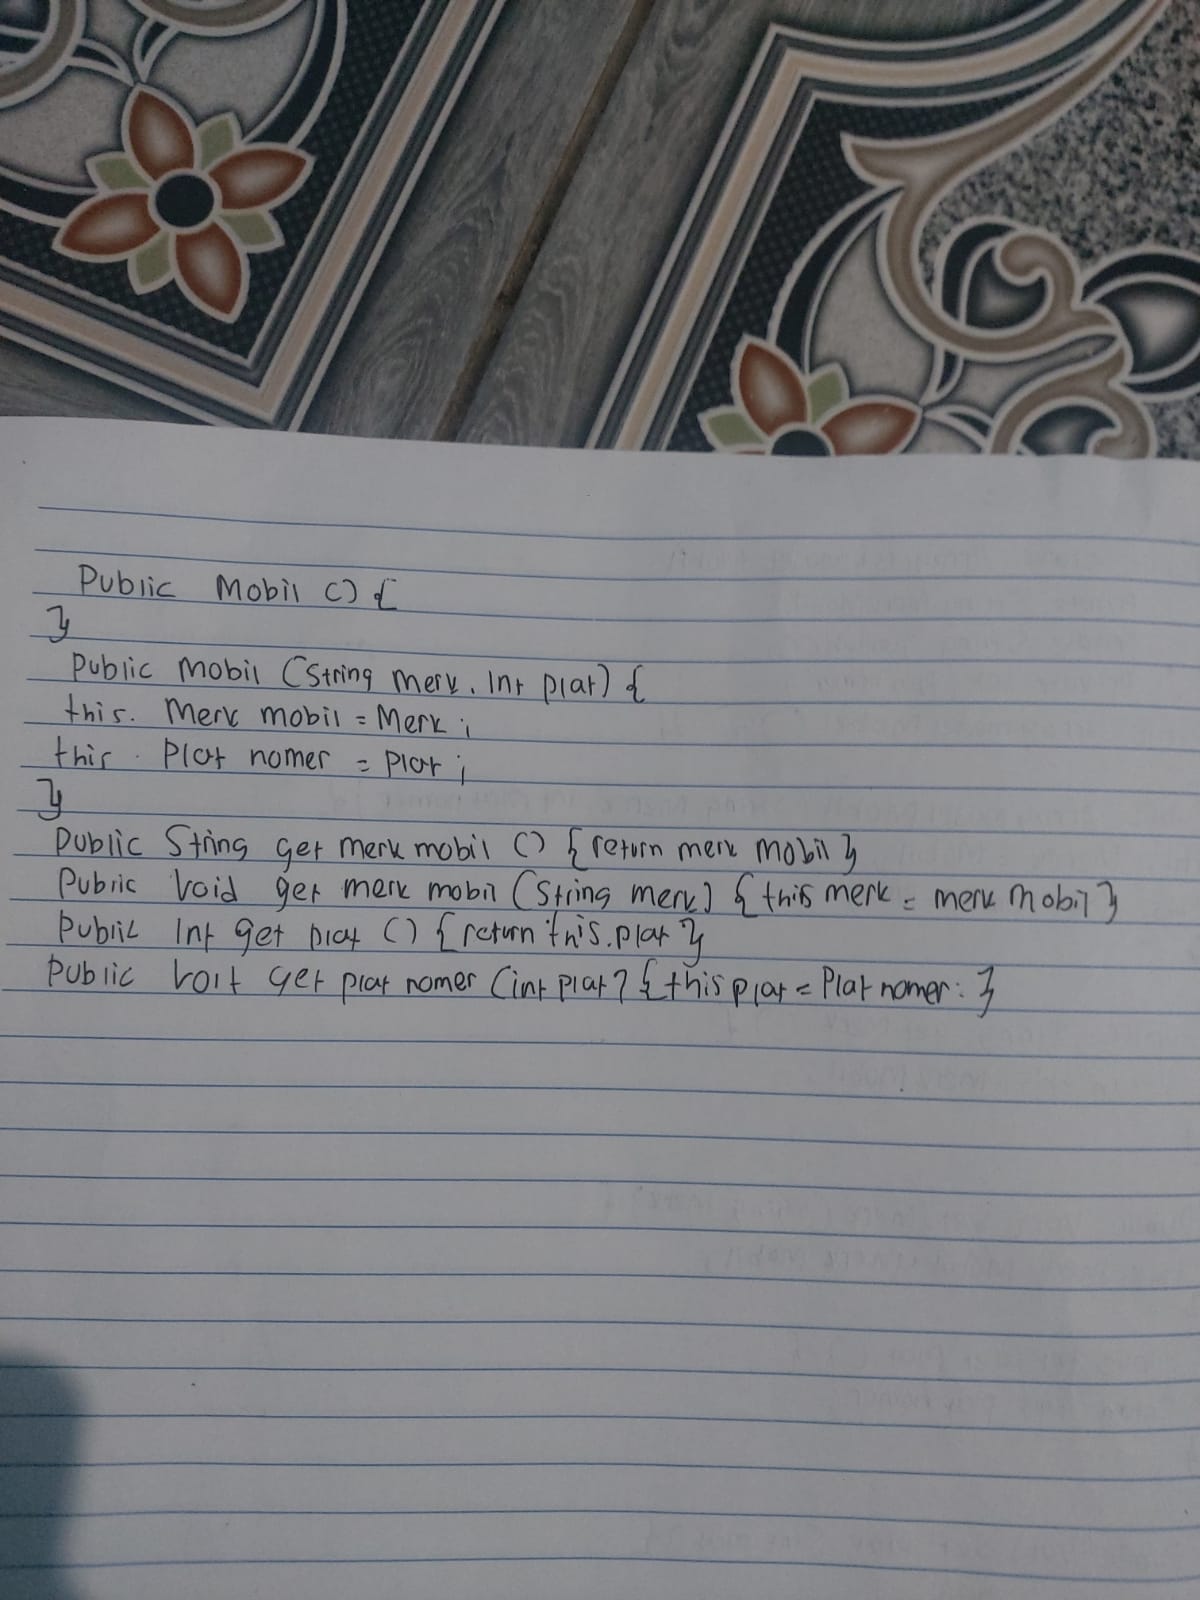 Public Mobil () {
}
Public Mobil (String merk, Int plat) {
this. Merk mobil = Merk ;
this . Plat nomer = Plat ;
}
Public String get merk mobil () { return merk mobil }
Public Void get merk mobil (String merk) { this merk = merk mobil }
Public Int get plat () { return this.plat }
Public voit get plat nomer (int plat) { this plat = Plat nomer: }